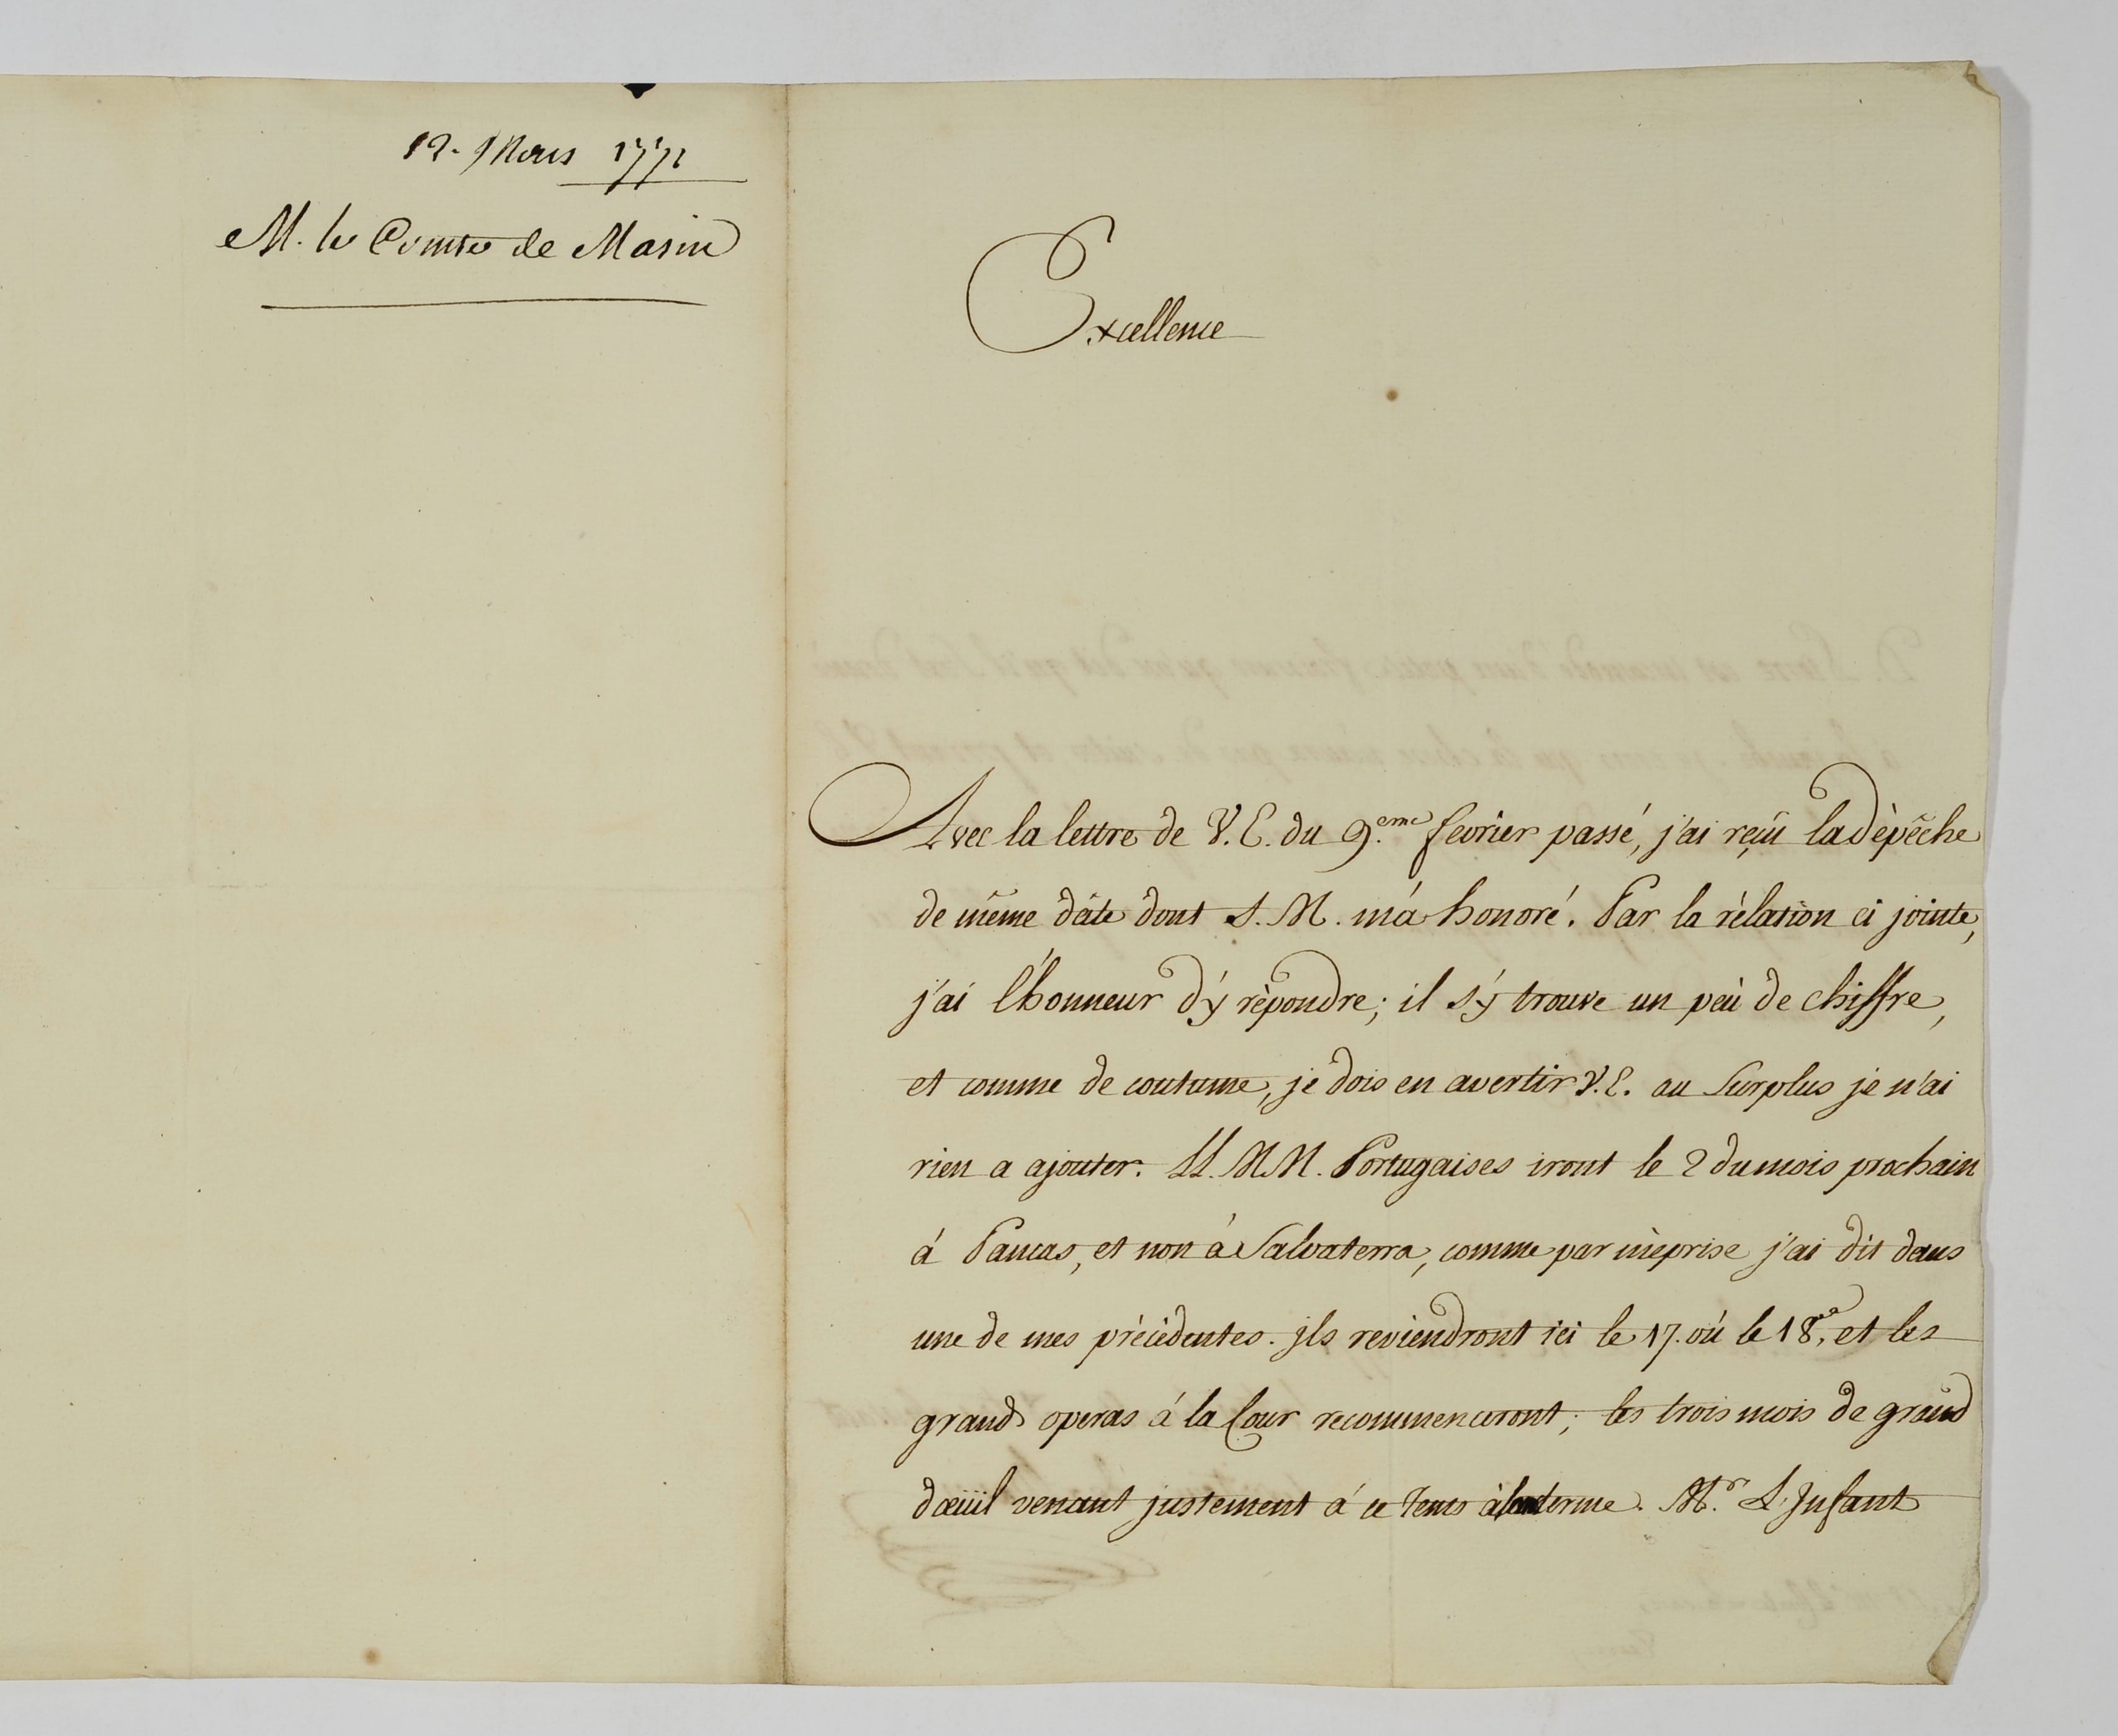 12. Mars 1771
M. le Comte de Masin
Excellence
Avec la lettre de V. E. du 9.eme fevrier passé, j'ai reçû la dèpêche
de même dâte dont S. M. m'á honoré. Par la rèlation ci jointe,
j'ai l'honneur d'ÿ rèpondre; il s'ÿ trouve un peù de chiffre,
et comme de coutume, je dois en avertir V. E. au surplus je n'ai
rien a ajouter. LL. MM. Portugaises iront le 2 du mois prochain
á Pancas, et non á Salvaterra, comme par mèprise j'ai dit dans
une de mes prècèdentes. Jls reviendront ici le 17. où le 18.e, et les
grand operas á la Cour recommenceront; les trois mois de grand
dœüil venant justement á ce tems à terme. M.r L'Jnfant